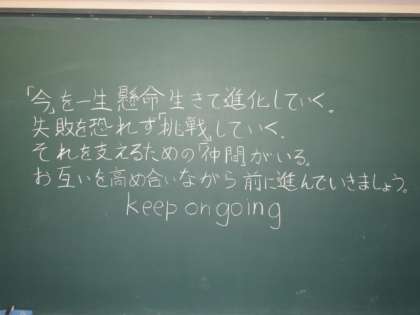 「今」を一生懸命生きて進化していく。
失敗を恐れず「挑戦」していく。
それを支えるための「仲間」がいる。
お互いを高め合いながら前に進んでいきましょう。
keep on going